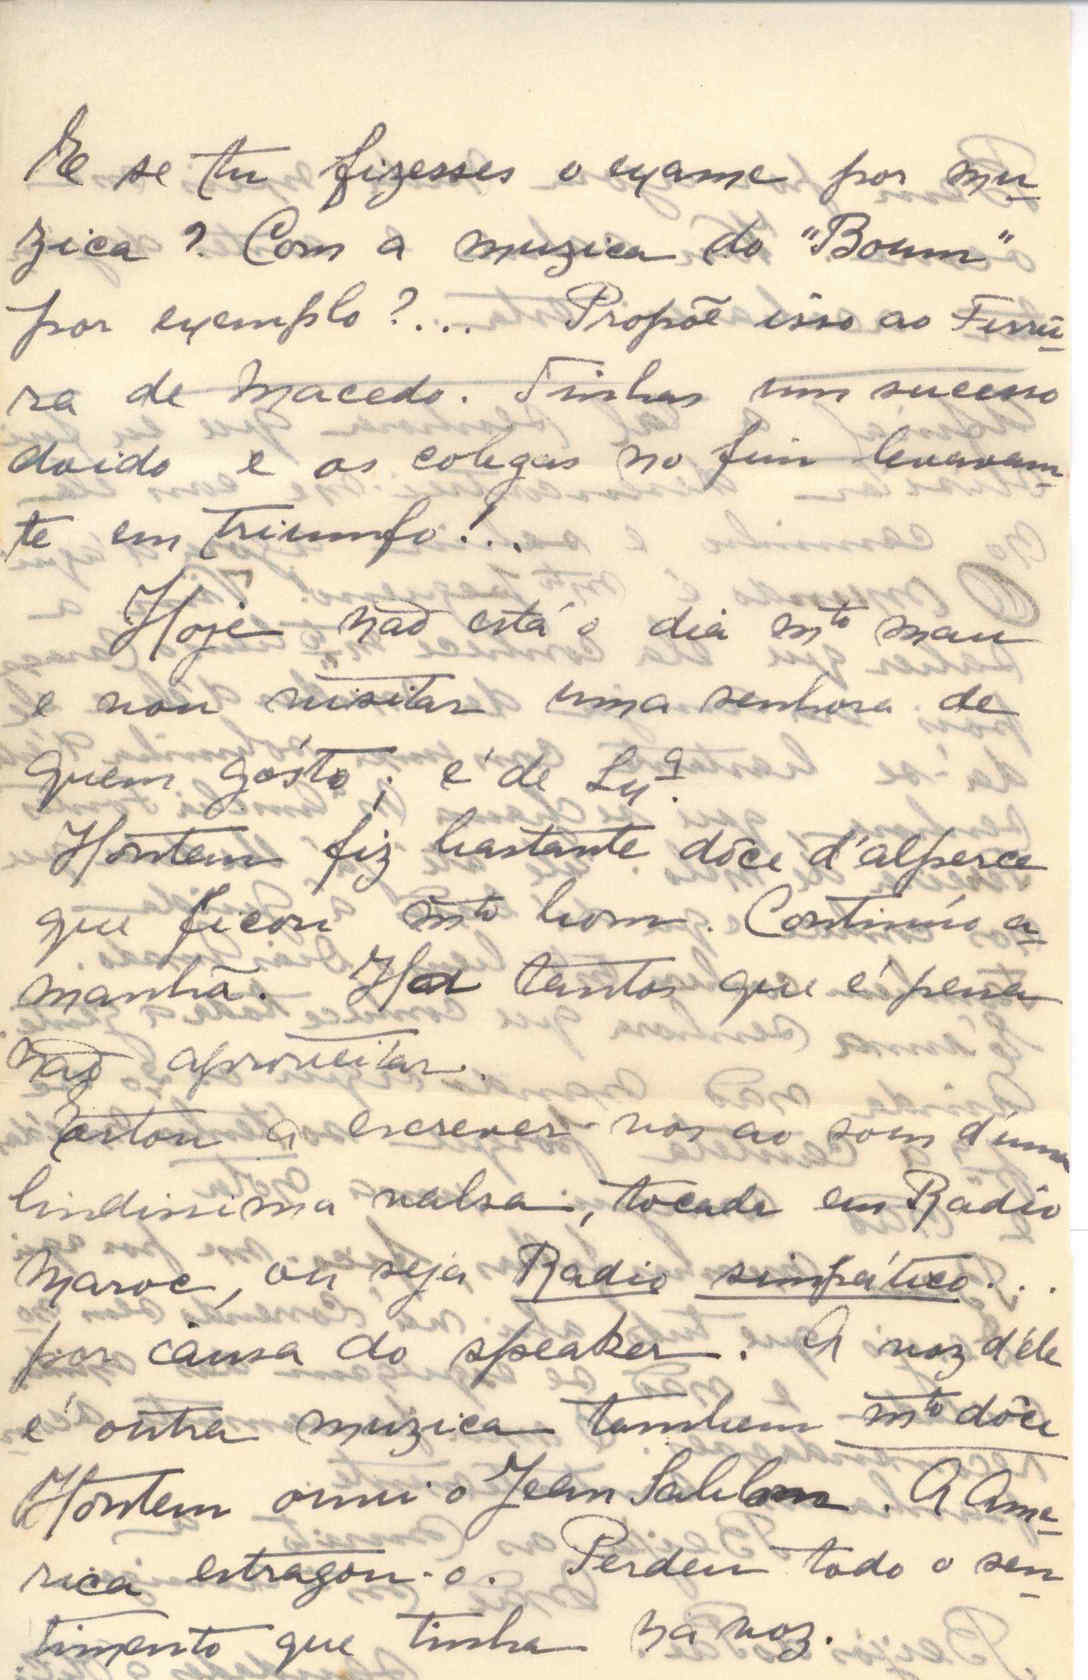 E se tu fizesses o exame por mu-
zica? Com a muzica do "Boum"
por exemplo?... Propõe isso ao Ferrei-
ra de Macedo. Tinhas um sucesso
doido e os colegas no fim levavam-
te em triumfo!...
Hoje não está o dia mto mau
e vou visitar uma senhora de
quem gósto; é de Lxª.
Hontem fiz bastante dôce d'alperce
que ficou mto bom. Continúo a-
manhã. Ha tantos que é pena
não aproveitar.
Estou a escrever-vos ao som d'uma
lindissima valsa, tocada em Radio
Maroc, ou seja Radio simpático...
por causa do speaker. A voz d'éle
é outra muzica tambem mto dôce
Hontem ouvi o Jean Sablon. A Ame-
rica estragou-o. Perdeu todo o sen-
timento que tinha na voz.